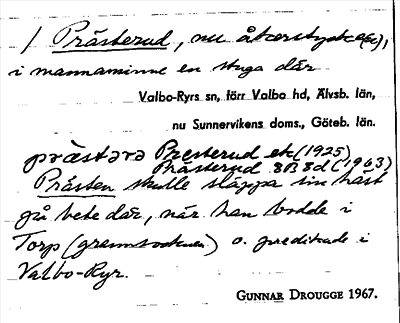 / Prästerud, nu åkerstycke(n),
i mannaminne en stuga där.
Valbo-Ryrs sn, förr Valbo hd, Älvsb. län,
nu Sunnervikens doms., Göteb. län.
prästərə Presterud ek (1925)
Prästerud 8B 8d (1963)
Prästen skulle släppa sin häst
på bete där, när han bodde i
Torp (grannsocknen) o. predikade i
Valbo-Ryr.
GUNNAR DROUGGE 1967.